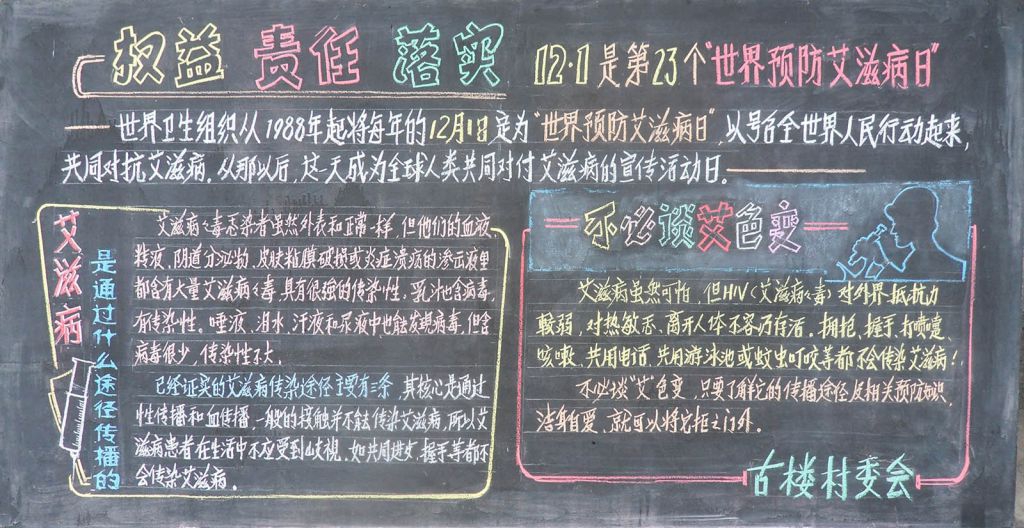 权益 责任 落实
12·1是第23个"世界预防艾滋病日"
世界卫生组织从1988年起将每年的12月1日定为"世界预防艾滋病日",以号召全世界人民行动起来,
共同对抗艾滋病。从那以后,这一天成为全球人类共同对付艾滋病的宣传活动日。
艾滋病
是通过什么途径传播的
艾滋病病毒感染者虽然外表和正常一样,但他们的血液,
精液,阴道分泌物,皮肤粘膜破损或炎症溃疡的渗出液里
都含有大量艾滋病病毒,具有很强的传染性,乳汁也含病毒,
有传染性。唾液,泪水,汗液和尿液中也能发现病毒,但含
病毒很少,传染性不大。
已经证实的艾滋病传染途径主要有三条,其核心是通过
性传播和血传播,一般的接触并不能传染艾滋病,所以艾
滋病患者在生活中不应受到歧视,如共同进食,握手等都不
会传染艾滋病。
不必谈艾色变
艾滋病虽然可怕,但HIV(艾滋病病毒)对外界抵抗力
较弱,对热敏感、离开人体不容易存活。拥抱、握手、打喷嚏、
咳嗽、共用电话、共用游泳池或蚊虫叮咬等都不会传染艾滋病!
不必谈"艾"色变,只要了解它的传播途径及相关预防知识,
洁身自爱,就可以将它拒之门外。
古楼村委会